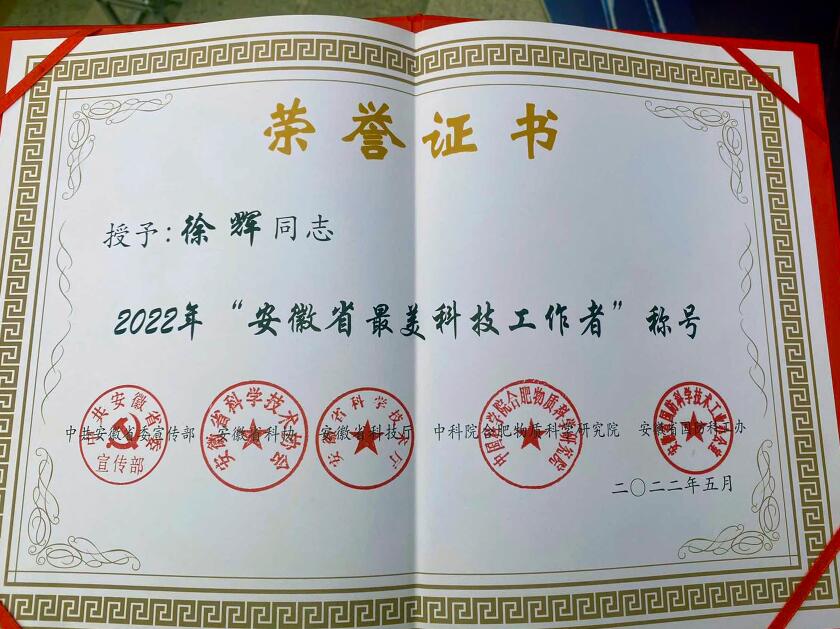 荣誉证书
授予:徐辉同志
2022年“安徽省最美科技工作者”称号
中共安徽省委宣传部 安徽省科协 安徽省科技厅 中科院合肥物质科学研究院 安徽省国防科工办
中共安徽省委
宣传部
安徽省科学技术协会
安徽省科学技术厅
中国科学院合肥物质科学研究院
二〇二二年五月